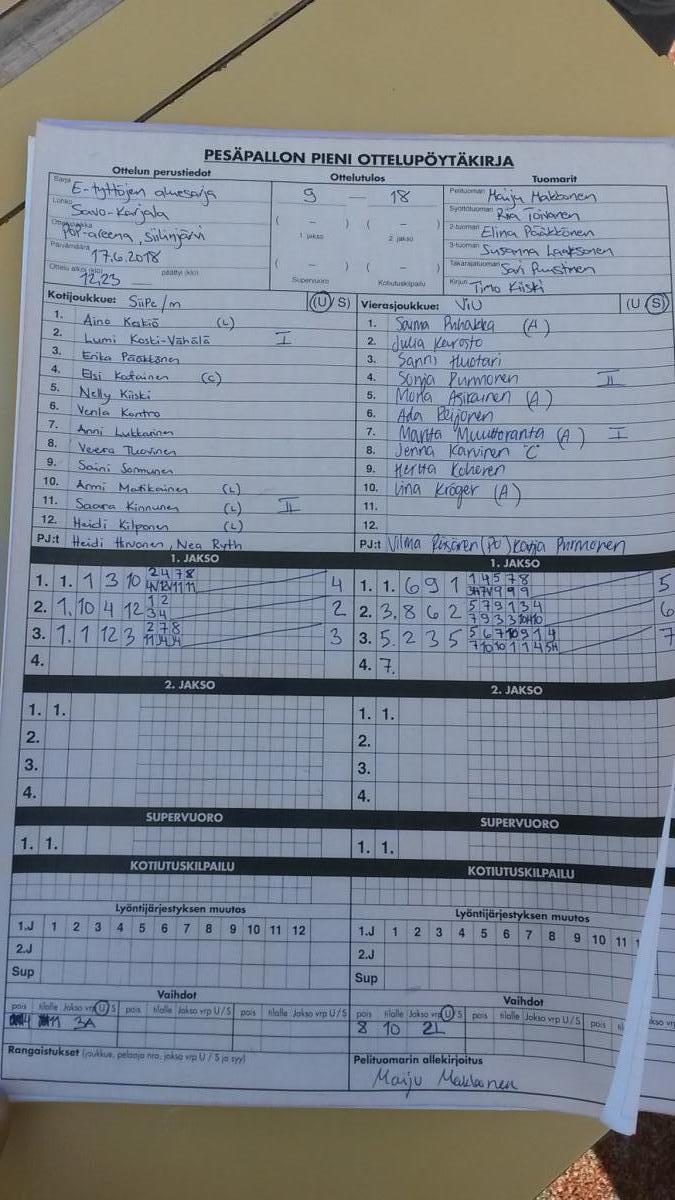 PESÄPALLON PIENI OTTELUPÖYTÄKIRJA
Ottelun perustiedot Ottelutulos Tuomarit
Sarja E-tyttöjen aluesarja 9 — 18 Pelituomari Maiju Makkonen
Lohko Savo-Karjala Syöttötuomari Riia Toivanen
Ottelupaikka POP-areena, Siilinjärvi ( – ) ( – ) 2-tuomari Elina Pääkkönen
1. jakso 2. jakso
Päivämäärä 17.6.2018 3-tuomari Susanna Laaksonen
Ottelu alkoi (klo) 12.23 päättyi (klo) ( – ) ( – ) Takarajatuomari Sari Puustinen
Supervuoro Kotiutuskilpailu Kirjuri Timo Kiiski
Kotijoukkue: SiiPe/m (U/S) Vierasjoukkue: ViU (U/S)
1. Aino Keskiö (L) 1. Saima Puhakka (A)
2. Lumi Koski-Vähälä I 2. Julia Karosto
3. Erika Pääkkönen 3. Sanni Huotari
4. Elsi Kotainen (C) 4. Sonja Purmonen II
5. Nelly Kiiski 5. Asikainen (A)
6. Venla Kontro 6. Ada Reijonen
7. Anni Lukkarinen 7. Martta Muuttoranta (A) I
8. Veera Tuovinen 8. Jenna Karvinen "C"
9. Saini Sormunen 9. Hertta Kohonen
10. Armi Matikainen (L) 10. Kröger (A)
11. Saara Kinnunen (L) II 11.
12. Heidi Kilponen (L) 12.
PJ:t Heidi Hirvonen, Nea Ryth PJ:t Vilma Räsänen (PV) Katja Purmonen
1. JAKSO 1. JAKSO
1. 1. 1 3 10 2 4 7 8 4 1. 1. 6 9 1 1 4 5 7 8 5
2. 1. 10 4 12 1 2 3 4 2 2. 3. 8 6 2 5 7 9 1 3 4 6
3. 1. 1 12 3 2 7 8 11 4 4 3 3. 5. 2 3 5 5 6 7 10 9 1 4 7
4. 4. 7.
2. JAKSO 2. JAKSO
1. 1. 1. 1.
2. 2.
3. 3.
4. 4.
SUPERVUORO SUPERVUORO
1. 1. 1. 1.
KOTIUTUSKILPAILU KOTIUTUSKILPAILU
Lyöntijärjestyksen muutos Lyöntijärjestyksen muutos
1.J 1 2 3 4 5 6 7 8 9 10 11 12 1.J 1 2 3 4 5 6 7 8 9 10 11
2.J 2.J
Sup Sup
Vaihdot Vaihdot
pois tilalle Jakso vrp U/S pois tilalle Jakso vrp U/S pois tilalle Jakso vrp U/S pois tilalle Jakso vrp U/S pois tilalle Jakso vrp U/S pois
3A 8 10 2L
Rangaistukset (joukkue, pelaaja nro, jakso vrp U / S ja syy) Pelituomarin allekirjoitus
Maiju Makkonen